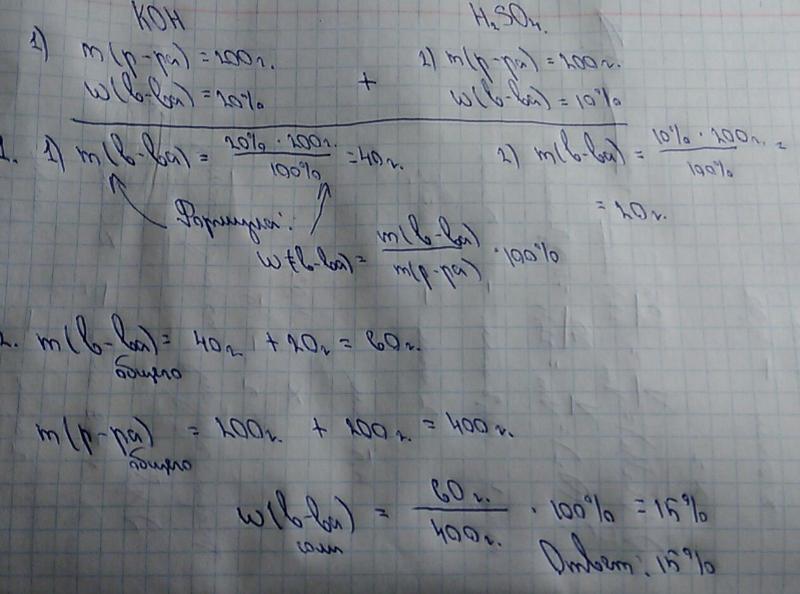 KOH H₂SO₄.
1) m(р-ра) = 200г. 2) m(р-ра) = 200г.
W(в-ва) = 20% + W(в-ва) = 10%
1. 1) m(в-ва) = 20% · 200г. / 100% = 40г. 2) m(в-ва) = 10% · 200г. / 100% =
= 20г.
Формула:
W(в-ва) = m(в-ва) / m(р-ра) · 100%
2. m(в-ва) общего = 40г + 20г = 60г.
m(р-ра) общего = 200г. + 200г. = 400г.
W(в-ва) соли = 60г. / 400г. · 100% = 15%
Ответ: 15%